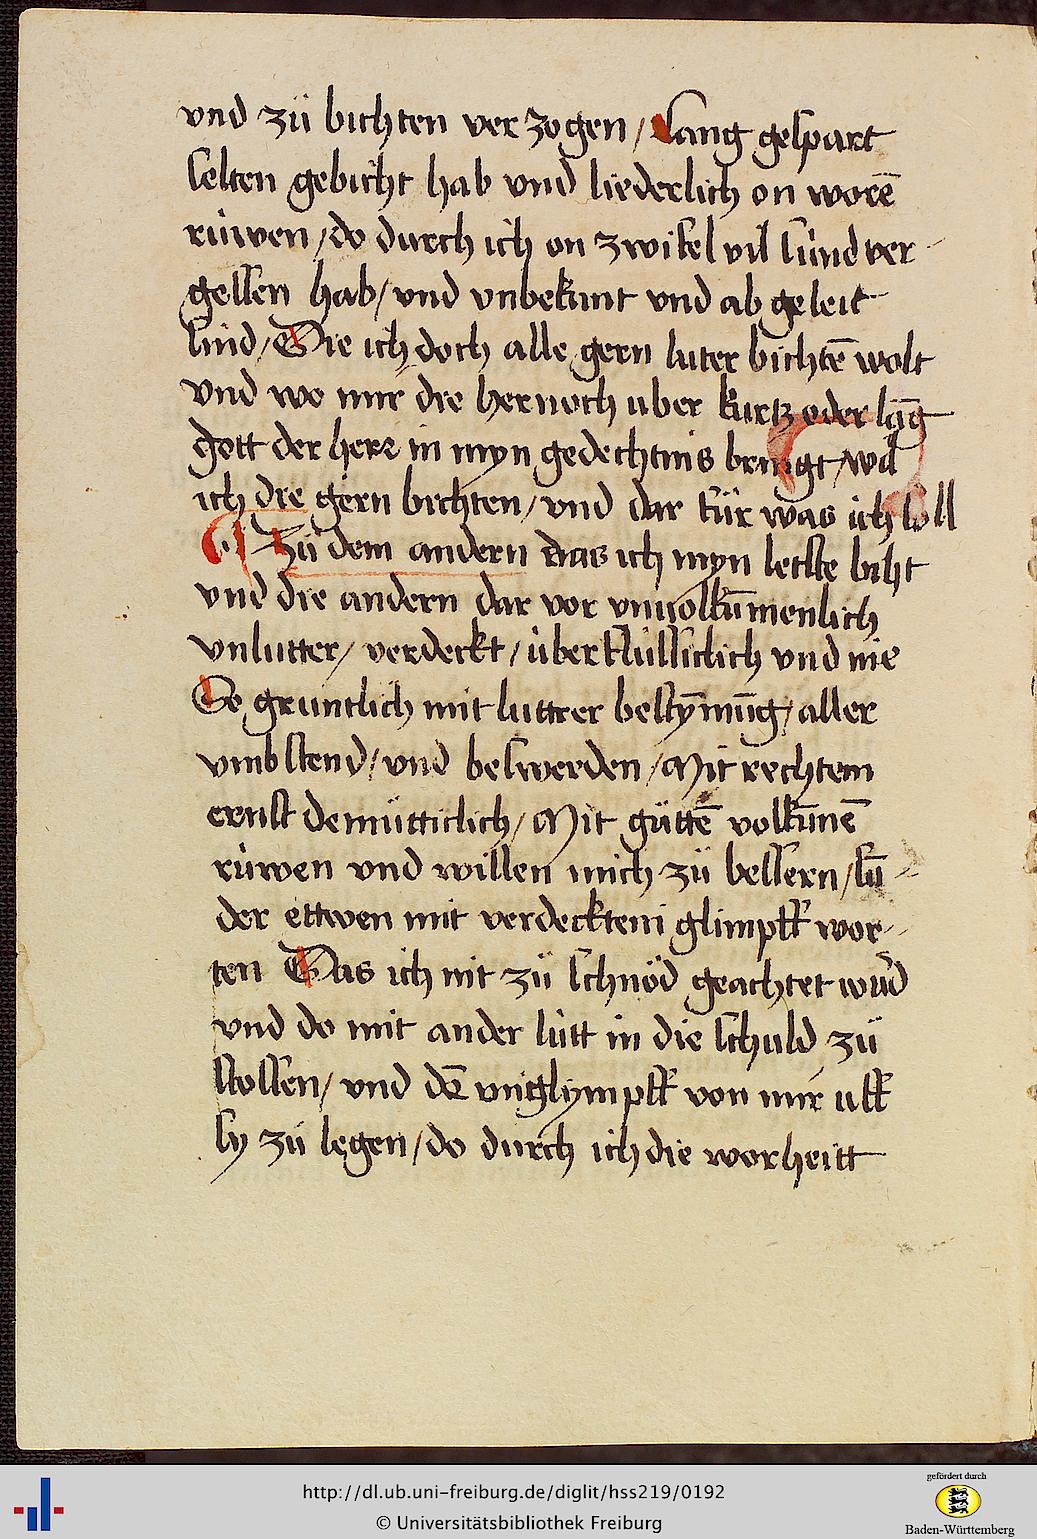 vnd zü bichten verzogen / lang gespart
selten gebicht hab vnd liederlich on worē
rúwen / do durch ich on zwifel vil súnd ver
gessen hab / vnd vnbekant vnd ab geleit
sind / Die ich doch alle gern luter bichtē wolt
vnd wo mir die hernoch uber kurtz oder lāg
gott der herr in myn gedechtnis bringt / wil
ich die gern bichten / vnd dar für was ich soll
Zü dem andern das ich myn letste biht
vnd die andern dar vor vnuolkūmenlich
vnlutter / verdeckt / überflüssiclich vnd nie
So gruntlich mit luttrer bestȳmūg / aller
vmbstend / vnd beswerden / Mit rechtem
ernst demütticlich / Mit güttē volkūmē
rúwen vnd willen mich zü bessern / sū
der ettwen mit verdecktem glimpff wor-
ten Das ich nit zü schnöd geachtet wúrd
vnd do mit ander lútt in die schuld zü
stossen / vnd dē vnglympff von mir uff
sy zü legen / do durch ich die worheitt
http://dl.ub.uni-freiburg.de/diglit/hss219/0192
© Universitätsbibliothek Freiburg
gefördert durch
Baden-Württemberg